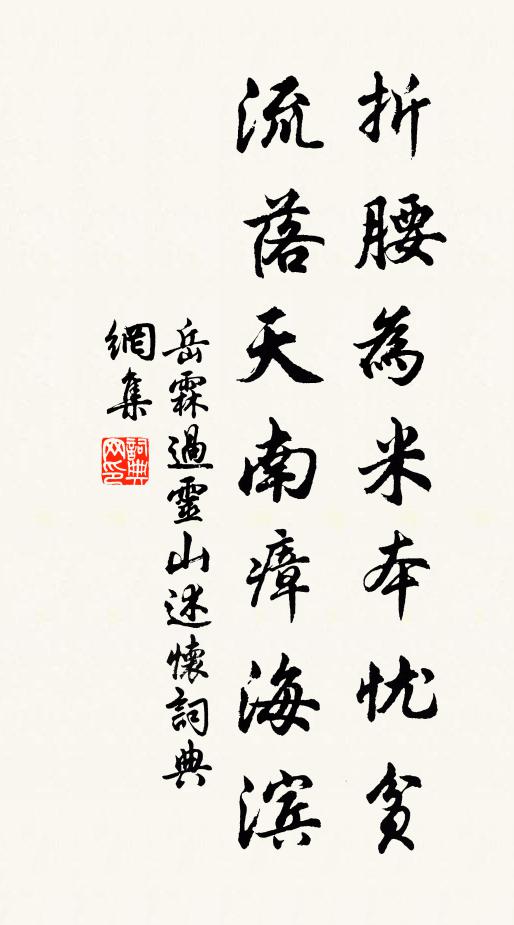 折腰為米本忧貧
流落天南瘴海滨
岳霖過靈山述懷詞典
網集
詞典网印